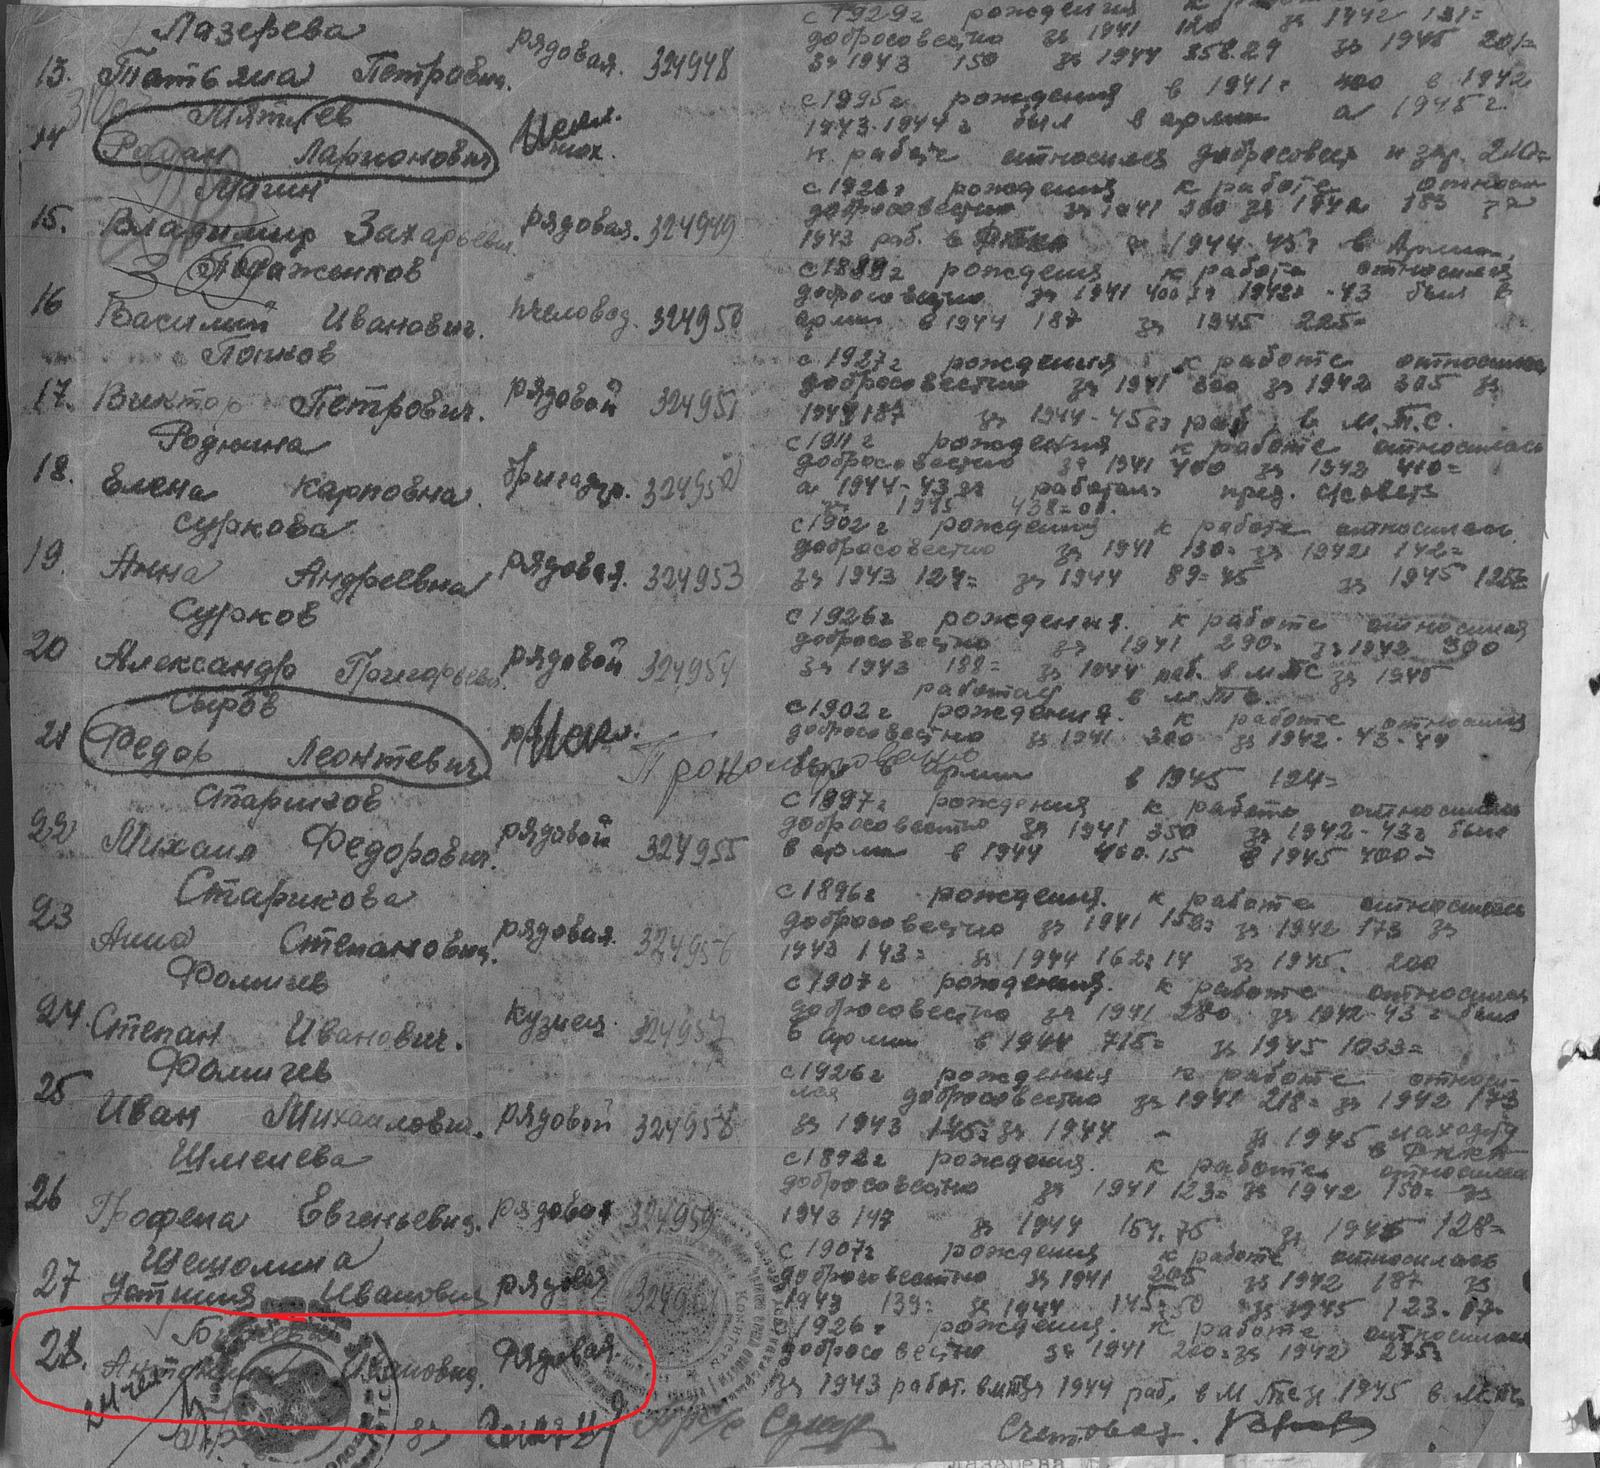 Лазерева
с 1929г рождения к работе
добросовестно за 1941 120 за 1942 131=
13. Татьяна Петровн. рядовая. 324948
за 1943 150 за 1944 258.29 за 1945 201=
Мятлев
с 1895г рождения в 1941г 400 в 1942
14 Роман Ларионович
1943.1944г был в армии а 1945г.
к работе относился добросовест и зар. 210=
Магин
с 1926г рождения к работе относил
добросовестно за 1941 300 за 1942 183 за
15. Владимир Захарьеви. рядовая. 324949
1943 раб. в за 1944-45г в Армии.
Подаженков
с 1889г рождения к работе относился
добросовестно за 1941 400 за 1942г -43 был в
16 Василий Иванович. пчеловод. 324950
армии в 1944 187 за 1945 225=
Попков
с 1927г рождения к работе относился
17. Виктор Петрович. рядовой 324951
добросовестно за 1941 300 за 1942 305 за
1943 187 за 1944-45гг раб. в М.Т.С.
Роднина
с 1911г рождения к работе относилась
18. Елена Карповна. бригадир. 324952
добросовестно за 1941 400 за 1942 410=
а 1944-43гг работала пред. с/совета
за 1945 438=00.
Суркова
с 1902г рождения к работе относилась.
19. Анна Андреевна рядовая. 324953
добросовестно за 1941 130= за 1942 142=
за 1943 124= за 1944 89=45 за 1945 125=
Сурков
с 1926г рождения. к работе относился
20 Александр Григорьеви. рядовой 324954
добросовестно за 1941 290= за 1942 300
за 1943 188= за 1944 раб. в МТС за 1945
работал в МТС.
Сыров
с 1902г рождения. к работе относился
21 Федор Леонтевич
добросовестно за 1941 300 за 1942-43-44
был в армии в 1945 124=
Стариков
с 1897г рождения к работе относился
22 Михаил Федорович. рядовой 324955
добросовестно за 1941 350 за 1942-43г был
в армии в 1944 460.15 в 1945 400=
Старикова
с 1896г рождения. к работе относилась
23 Анна Степановна. рядовая. 324956
добросовестно за 1941 158= за 1942 173 за
1943 143= за 1944 162=14 за 1945. 200
Фомичев
с 1907г рождения. к работе относился
24. Степан Иванович. кузнец. 324957
добросовестно за 1941 280 за 1942-43г был
в армии в 1944 715= за 1945 1033=
Фомичев
с 1926г рождения к работе относи-
лся добросовестно за 1941 218= за 1942 173
25 Иван Михаилович. рядовой 324958
за 1943 145= за 1944 - за 1945 находу
в
Шмелева
с 1892г рождения. к работе относилась
26 Грофена Евгеньевна. рядовая 324959
добросовестно за 1941 123= за 1942 150= за
1943 147 за 1944 154.75 за 1945 128=
Шешолина
с 1907г рождения к работе относилась
27 Устиния Ивановна рядовая
добросовестно за 1941 205 за 1942 187 за
1943 139= за 1944 145=50 за 1945 123.07.
1926г рождения. к работе относилась
28. Антонина Ивановна. Рядовая.
добросовестно за 1941 200= за 1942 275=
за 1943 работ. в мтс за 1944 раб. в М.Т.С за 1945 в мтс
Счетовод.